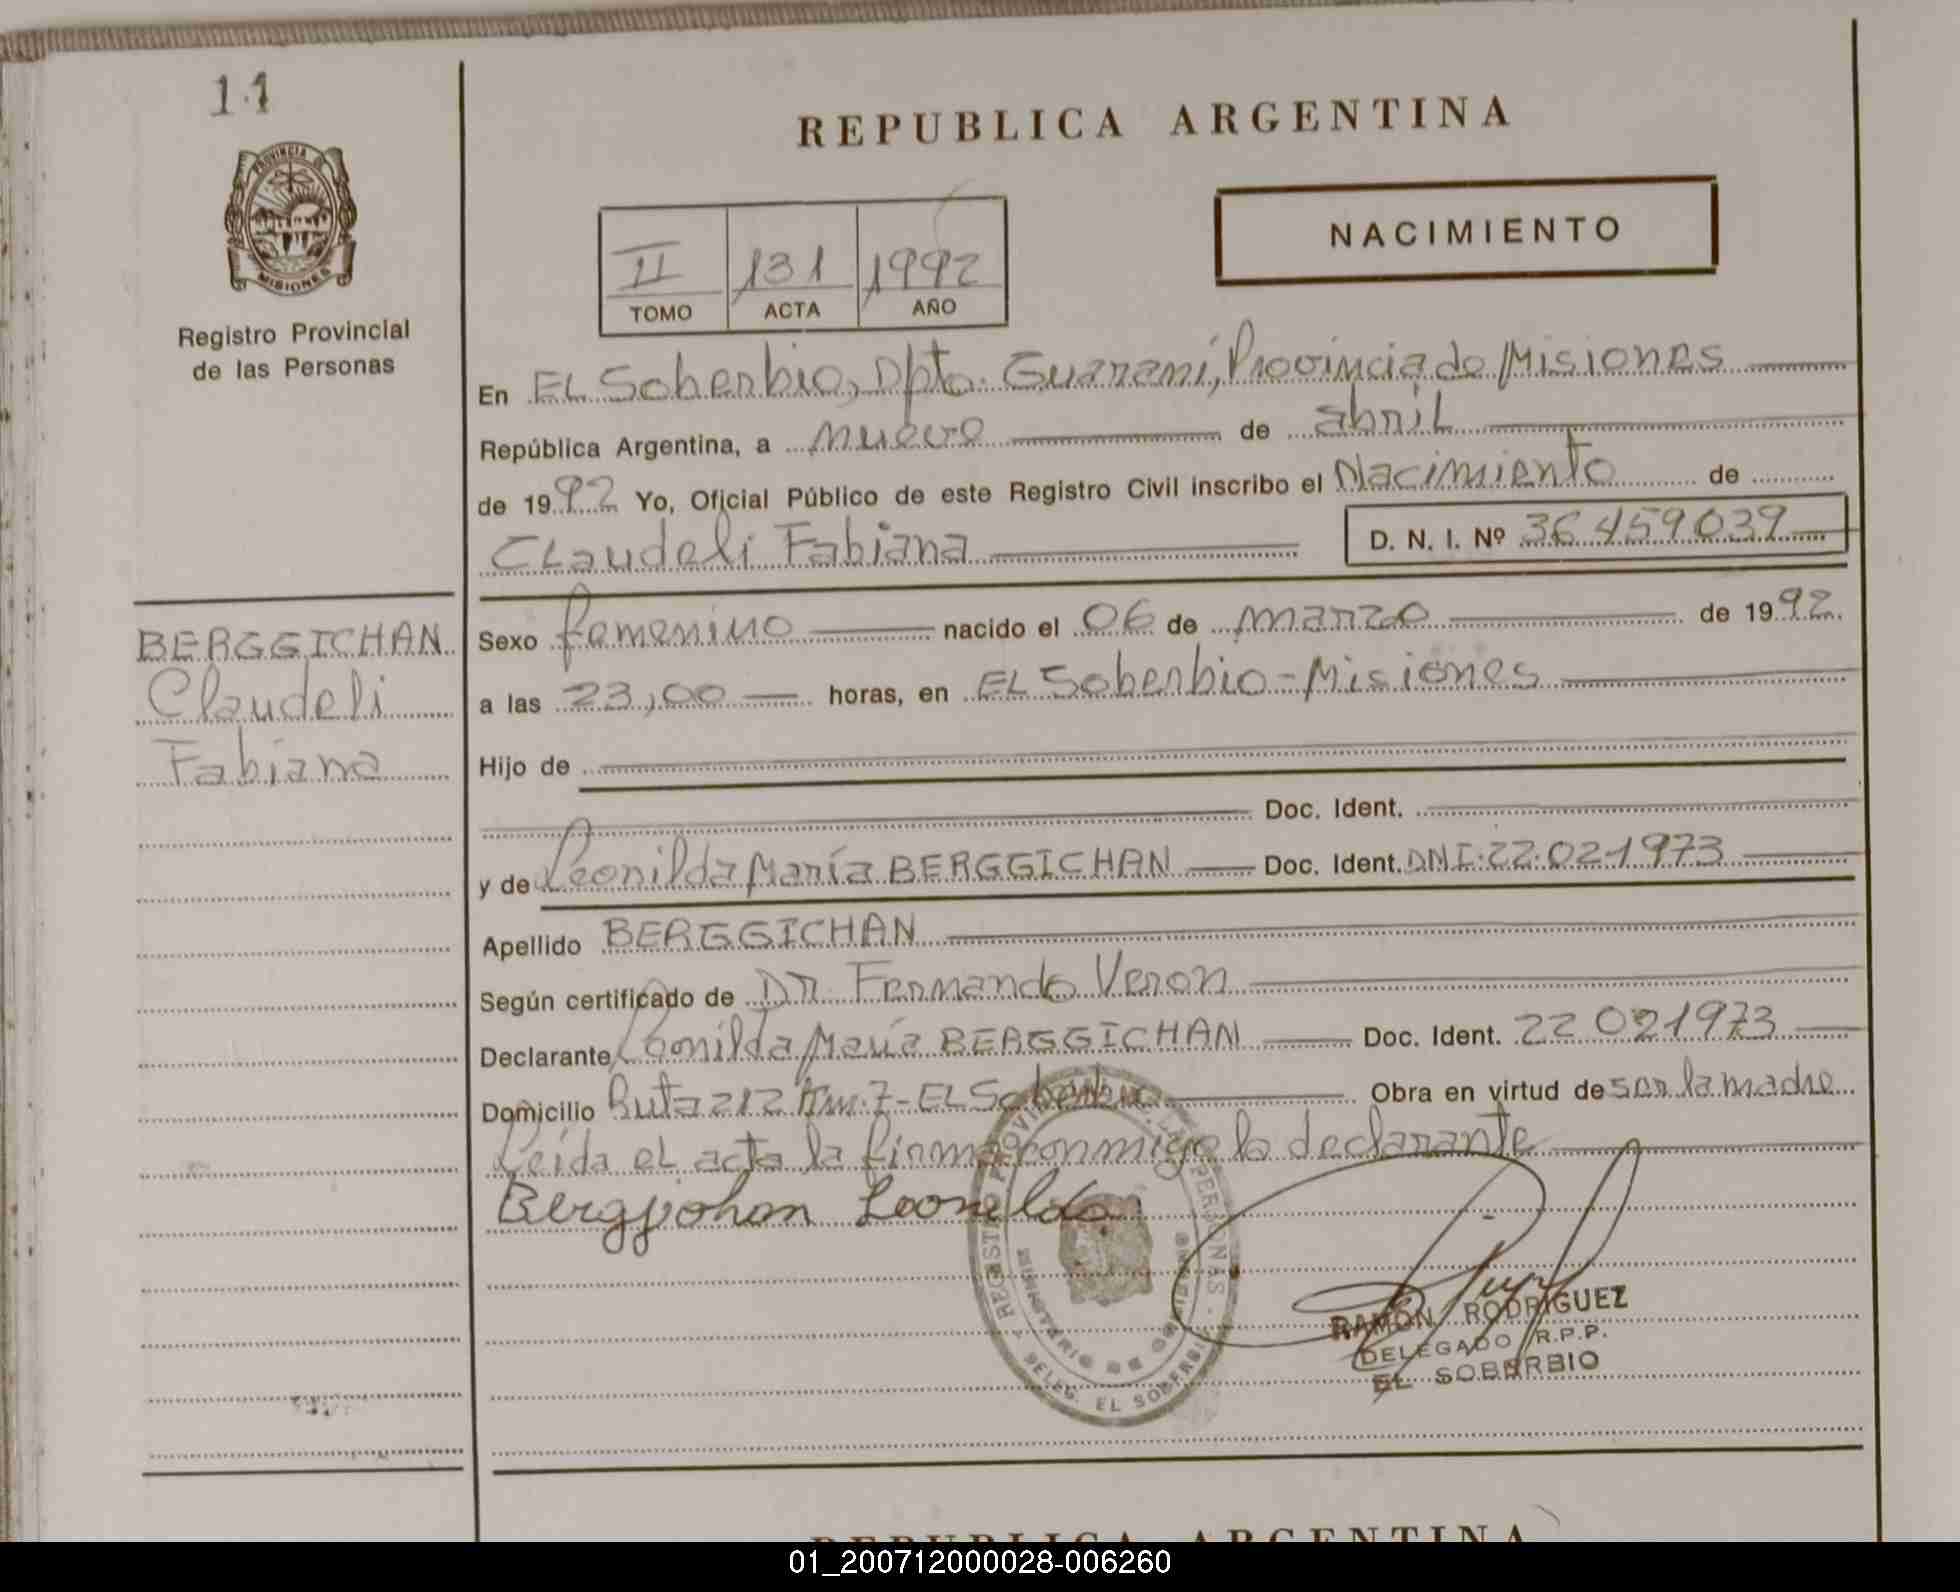 11
PROVINCIA DE
MISIONES
Registro Provincial
de las Personas
REPUBLICA ARGENTINA
NACIMIENTO
II 131 1992
TOMO ACTA AÑO
En EL Soberbio, Dpto. Guaraní, Provincia de Misiones
República Argentina, a nueve de abril
de 1992 Yo, Oficial Público de este Registro Civil inscribo el Nacimiento de
Claudeli Fabiana D. N. I. Nº 36459039
BERGGICHAN
Claudeli
Fabiana
Sexo femenino nacido el 06 de marzo de 1992.
a las 23,00 horas, en EL Soberbio-Misiones
Hijo de
Doc. Ident.
y de Leonilda María BERGGICHAN Doc. Ident. DNI:22.021973
Apellido BERGGICHAN
Según certificado de Dr. Fernando Veron
Declarante Leonilda María BERGGICHAN Doc. Ident. 22021973
Domicilio Ruta 212 Km.7-EL Soberbio Obra en virtud de ser la madre
Leída el acta la firma conmigo la declarante
Leonilda
REGISTRO PROVINCIAL DE LAS PERSONAS
DELEG. EL SOBERBIO
RAMON RODRIGUEZ
DELEGADO R.P.P.
EL SOBERBIO
REPUBLICA ARGENTINA
01_200712000028-006260